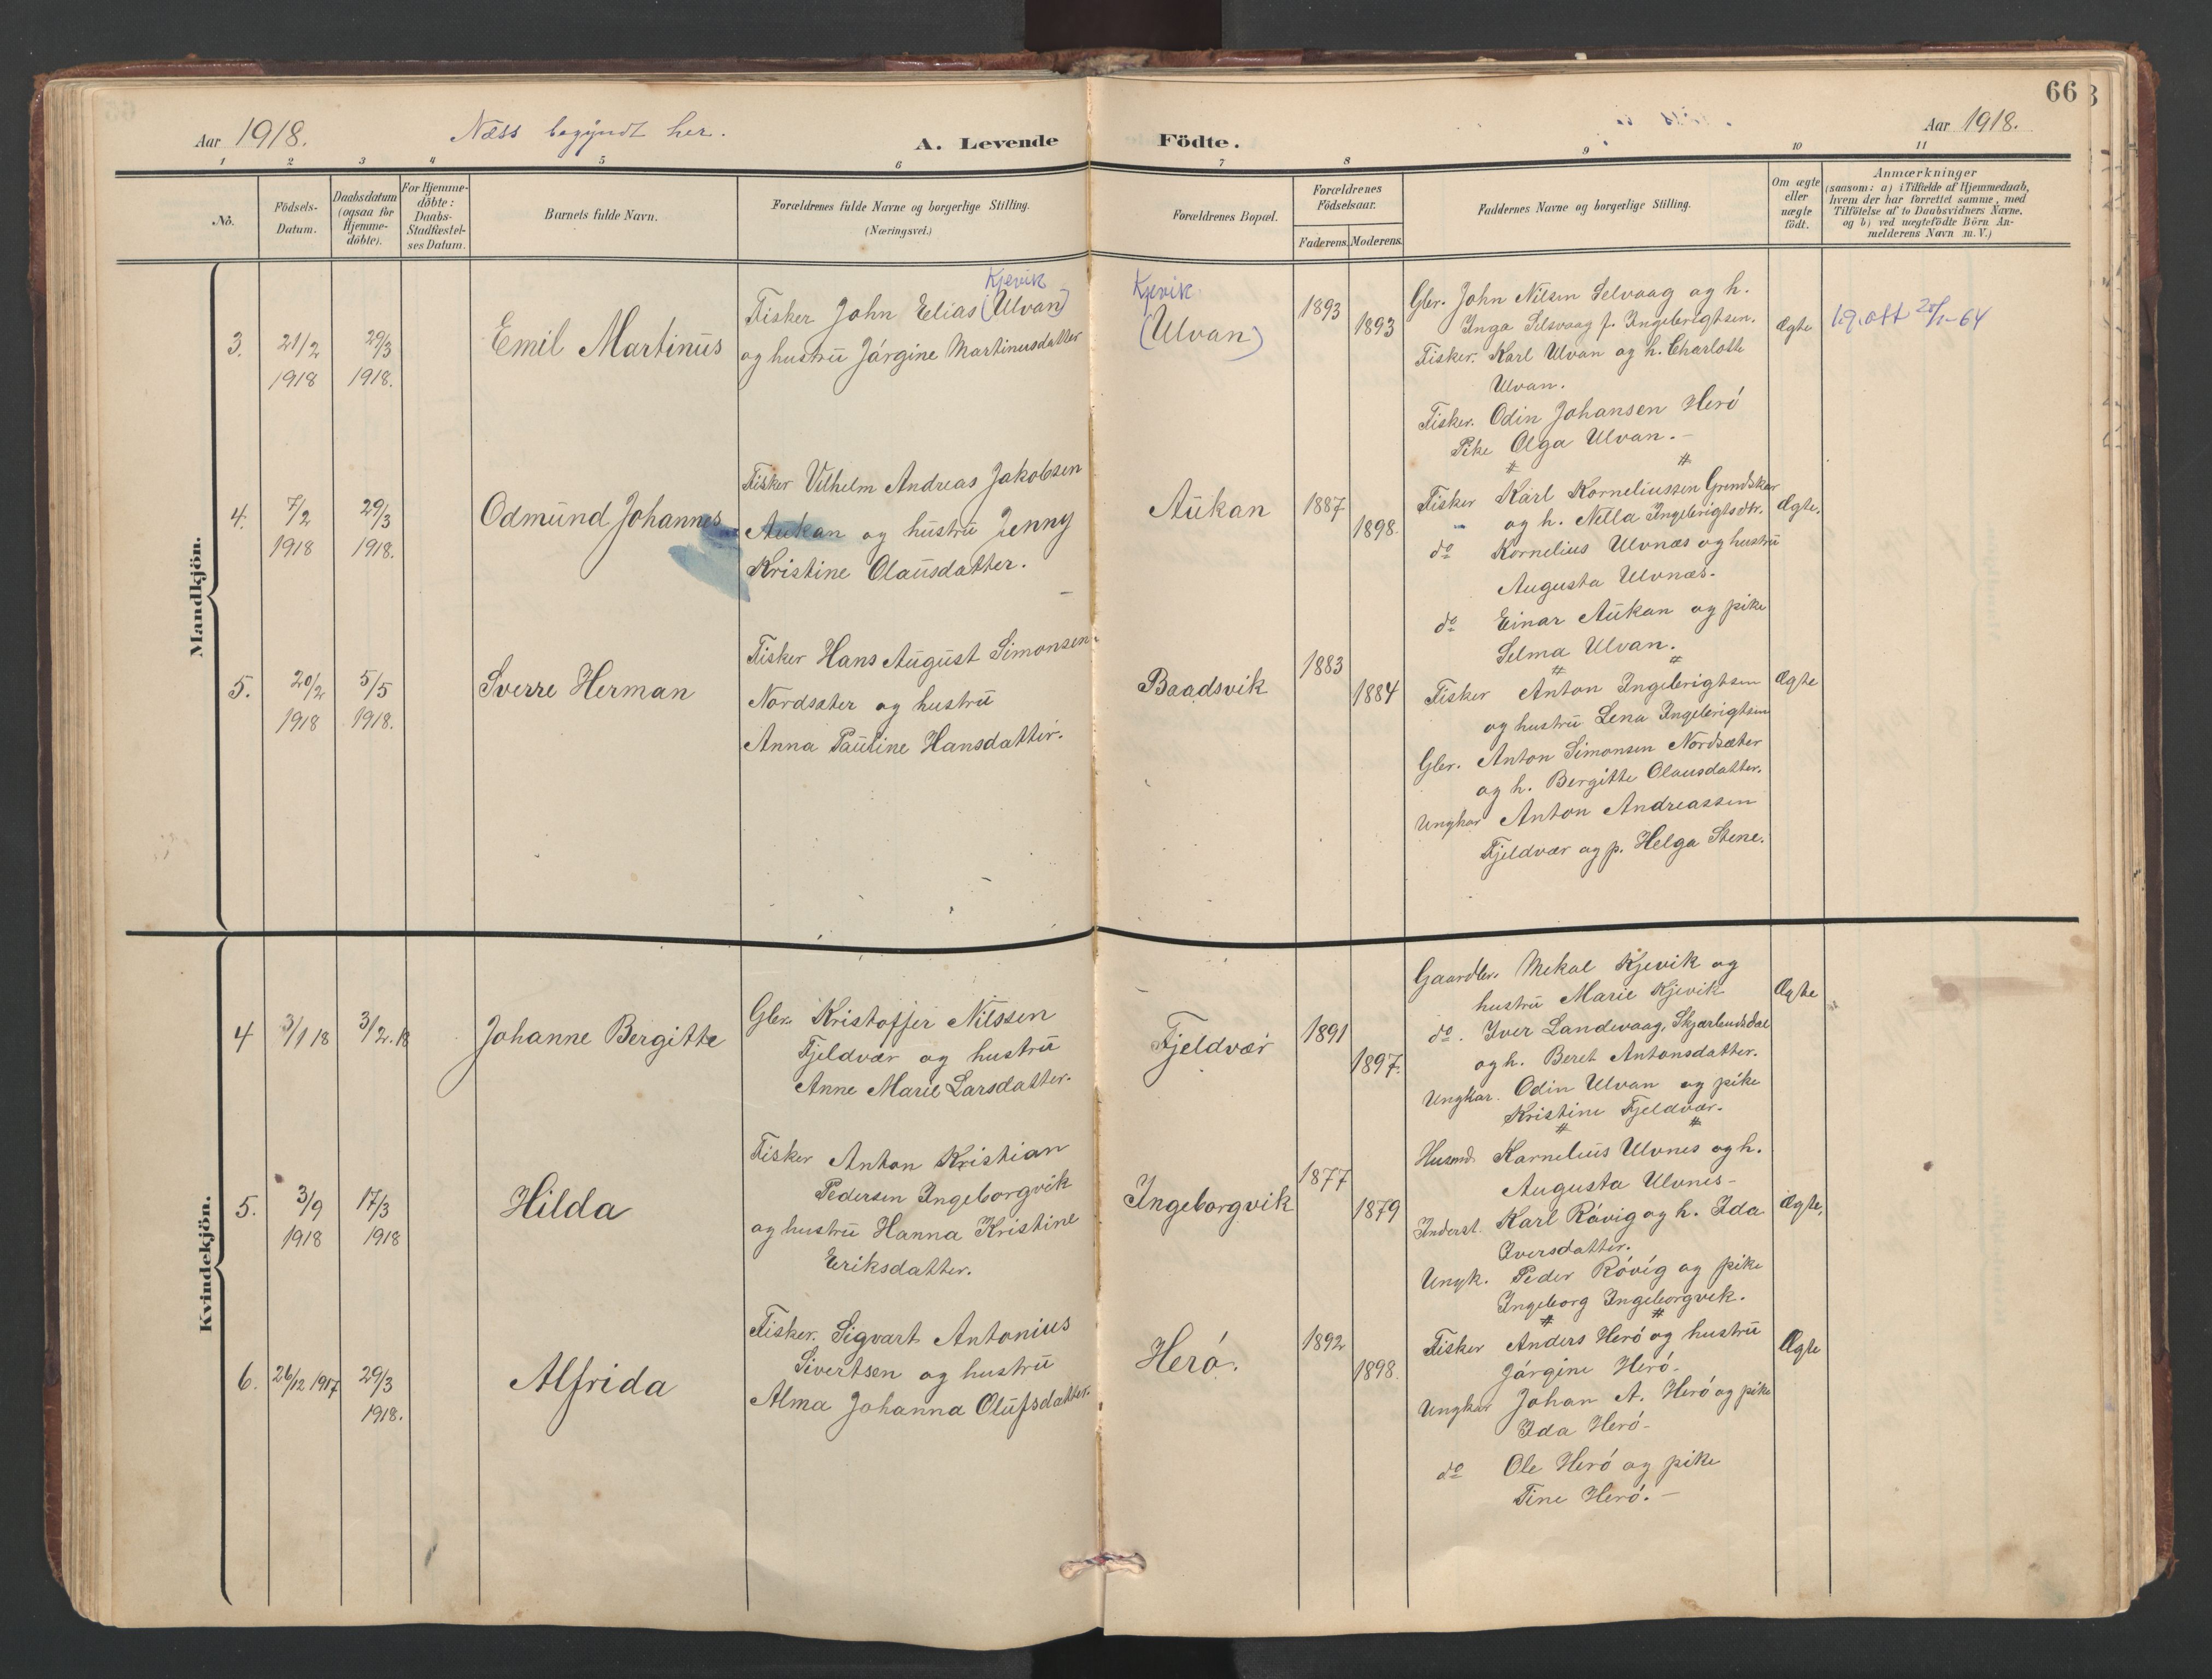 66
Aar 1918.
Næss begyndt her.
A. Levende Födte.
Aar 1918.
1 2 3 4 5 6 7 8 9 10 11
No.
Födsels-
Datum.
Daabsdatum
(ogsaa for
Hjemme-
döbte).
For Hjemme-
döbte:
Daabs-
Stadfæstel-
ses Datum.
Barnets fulde Navn.
Forældrenes fulde Navne og borgerlige Stilling.
(Næringsvei.)
Forældrenes Bopæl.
Forældrenes
Födselsaar.
Faderens. Moderens.
Faddernes Navne og borgerlige Stilling.
Om ægte
eller
uægte
födt.
Anmærkninger
(saasom: a) i Tilfælde af Hjemmedaab,
hvem der har forrettet samme, med
Tilföielse af to Daabsvidners Navne.
og b) ved uægtefödte Börn An-
melderens Navn m. V.)
Mandkjön.
3.
21/2
1918
29/3
1918.
Emil Martinus
Kjevik
Fisker John Elias (Ulvan)
og hustru Jørgine Martinusdatter
Kjevik
(Ulvan)
1893
1893
Gbr. John Nilsen Selvaag og h.
Inga Selsvaag f. Ingebrigtsen.
Fisker. Karl Ulvan og h. Charlotte
Ulvan.
Fisker. Odin Johansen Herö
Pike Olga Ulvan. -
Ægte
4.
7/2
1918
29/3
1918.
Odmund Johannes
Fisker Vilhelm Andreas Jakobsen
Aukan og hustru Jenny
Kristine Olausdatter.
Aukan
1887
1898.
Fisker Karl Korneliussen Grindskar
og h. Nella Ingebrigtsdtr.
do Kornelius Ulvnæs og hustru
Augusta Ulvnæs.
do Einar Aukan og pike
Selma Ulvan.
Ægte.
5.
20/2
1918
5/5
1918.
Sverre Herman
Fisker Hans August Simonsen
Nordsæter og hustru
Anna Pauline Hansdatter.
Baadsvik
1883
1884
Fisker Anton Ingebrigtsen
og hustru Lena Ingebrigtsen
Gbr. Anton Simonsen Nordsæter
og h. Bergitte Olausdatter.
Ungkar Anton Andreassen
Fjeldvær og p. Helga Stene.
Ægte
Kvindekjön.
4
3/1 18
3/2. 18
Johanne Bergitte
Gbr. Kristoffer Nilssen
Fjeldvær og hustru
Anne Marie Larsdatter.
Fjeldvær
1891
1897.
Gaardbr. Mekal Kjevik og
hustru Marie Kjevik
do. Iver Landevaag, Skjærbudsdal
og h. Beret Antonsdatter.
Ungkar. Odin Ulvan og pike
Kristine Fjeldvær.
Ægte
5.
3/9
1918
17/3
1918
Hilda
Fisker Anton Kristian
Pedersen Ingeborgvik
og hustru Hanna Kristine
Eriksdatter.
Ingeborgvik
1877
1879
Husmd. Karnelius Ulvnes og h.
Augusta Ulvnes -
Inderst. Karl Rövig og h. Ida
Iversdatter.
Ungk. Peder Rövig og pike
Ingeborg Ingeborgvik.
Ægte.
6.
26/12 1917
29/3
1918.
Alfrida
Fisker. Sigvart Antonius
Sivertsen og hustru
Alma Johanna Olufsdatter.
Herö.
1892
1898.
Fisker Anders Herö og hustru
Jörgine Herö.
Ungkar Johan A. Herö og pike
Ida Herö -
do Ole Herö og pike
Tine Herö. -
Ægte